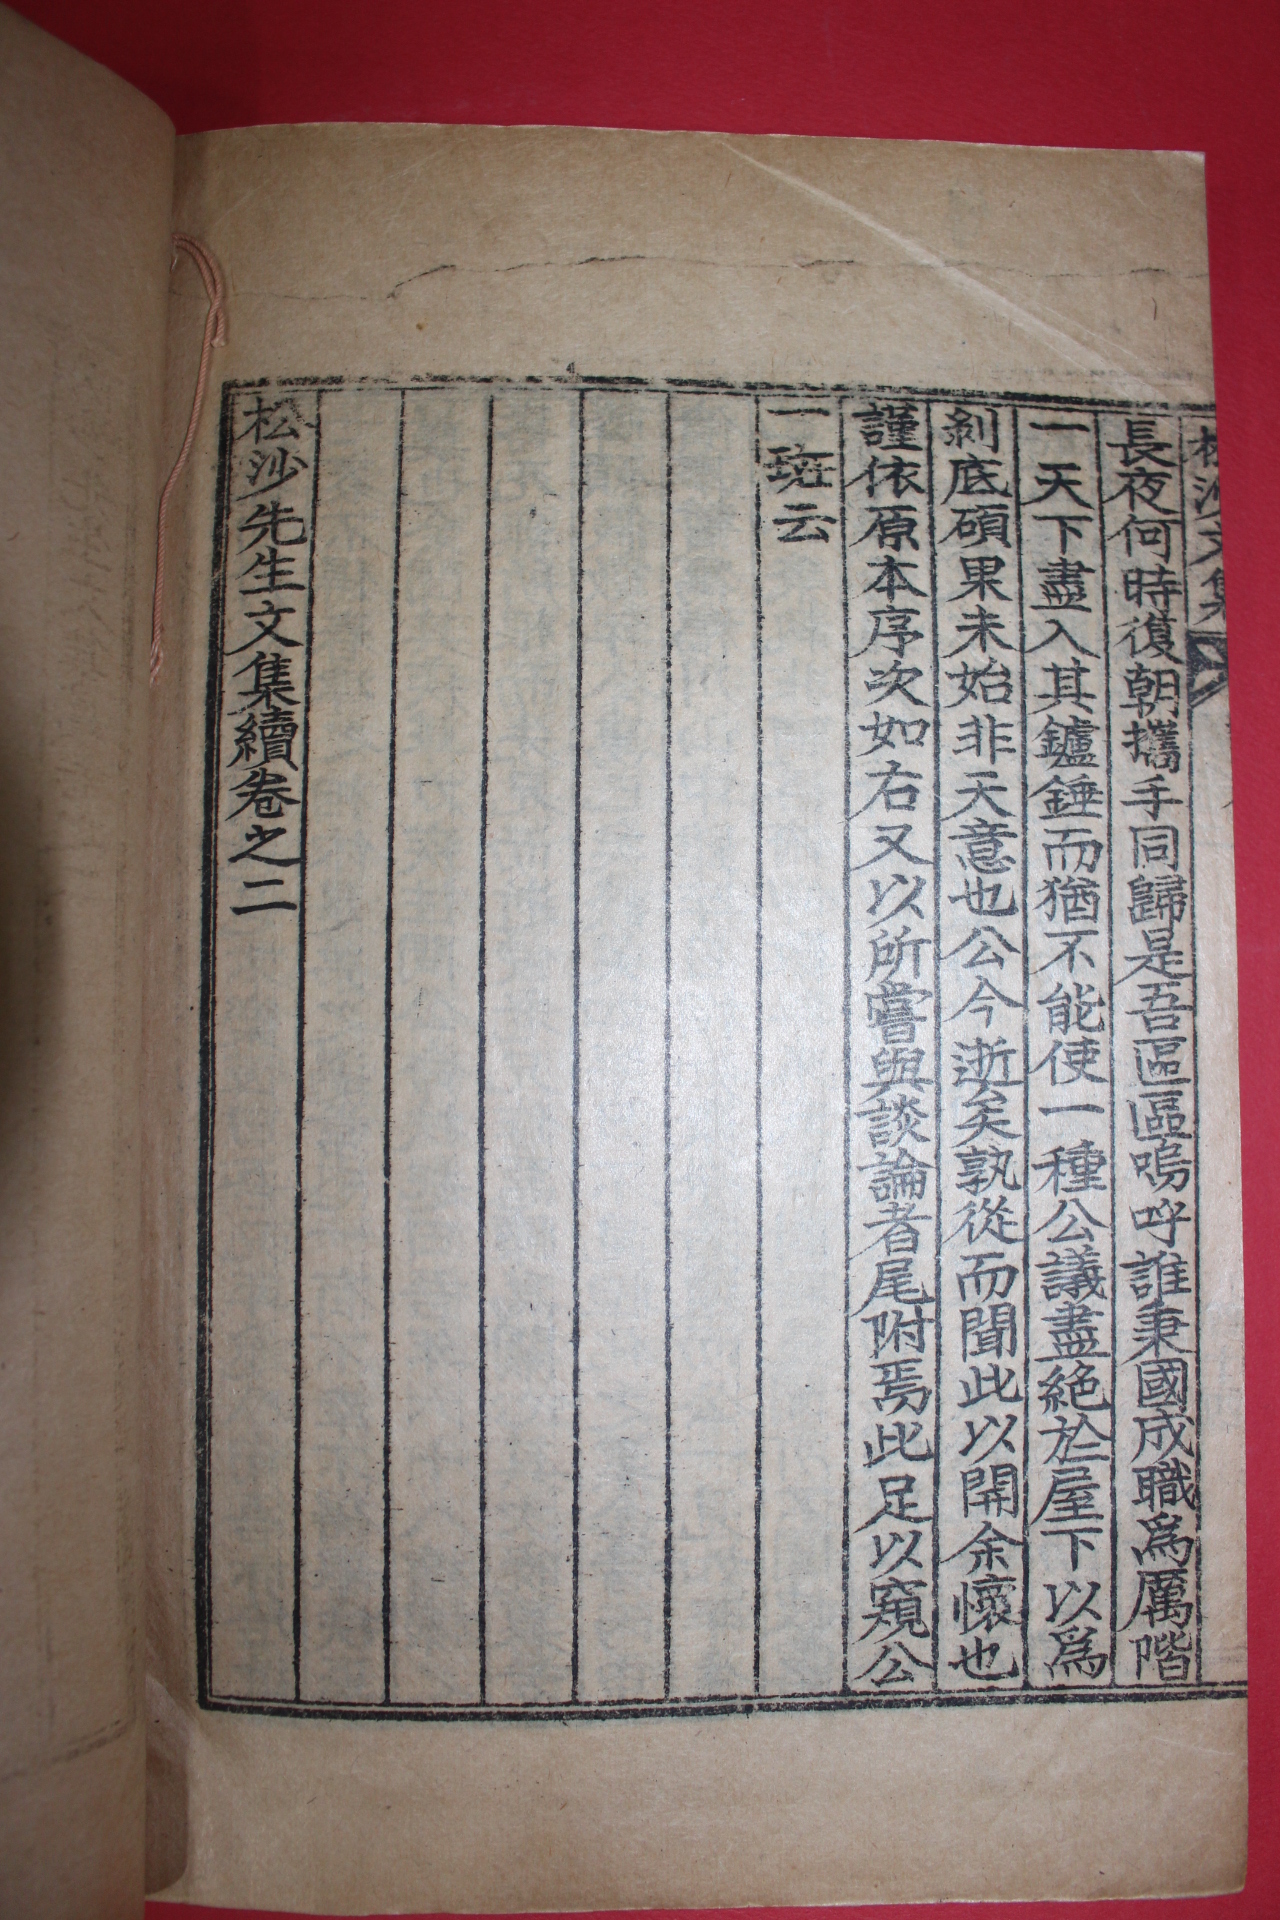 松沙文集
長夜何時復朝攜手同歸是吾區區嗚呼誰秉國成職爲厲階
一天下盡入其鑪錘而猶不能使一種公議盡絕於屋下以爲
剝底碩果未始非天意也公今逝矣孰從而聞此以開余懷也
謹依原本序次如右又以所嘗與談論者尾附焉此足以窺公
一斑云
松沙先生文集續卷之二